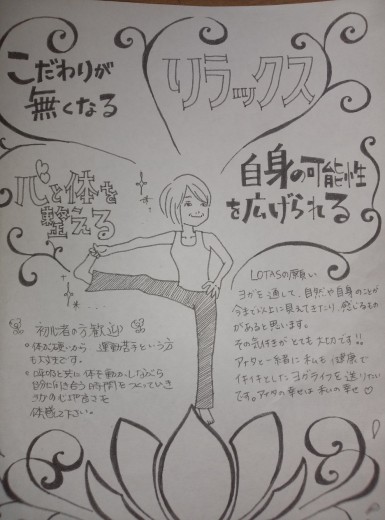 こだわりが
無くなる
リラックス
心と体を
整える
自身の可能性
を広げられる
LOTASの願い
ヨガを通して、自然や自身のことが
今まで以上に見えてきたり、感じるもの
があると思います。
その気付きがとても大切です!!
アナタと一緒に私も健康で
イキイキとしたヨガライフを送りたい
です。アナタの幸せは私の幸せ♡
初心者の方歓迎♪
体が硬いから 運動苦手という方
も大丈夫です。
呼吸と共に体を動かしながら
自分に向き合う時間をつくっていき
ヨガの心地良さを
体感して下さい。